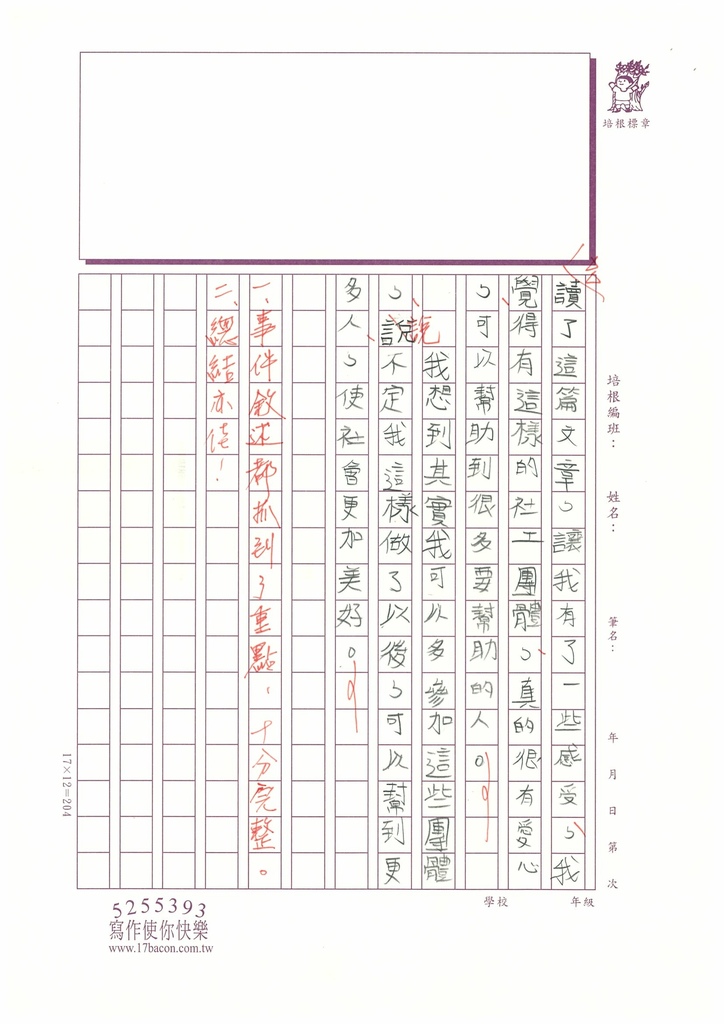 培根標章
讀了這篇文章，讓我有了一些感受，我
覺得有這樣的社工團體，真的很有愛心
，可以幫助到很多要幫助的人。
我想到其實我可以多參加這些團體
，說說不定我這樣做了以後，可以幫到更
多人、，使社會更加美好。
一、事件敘述都抓到了重點，十分完整。
二、總結亦佳！
培根編班： 姓名： 筆名： 年 月 日 第 次
學校 年級
17×12=204
5255393
寫作使你快樂
www.17bacon.com.tw